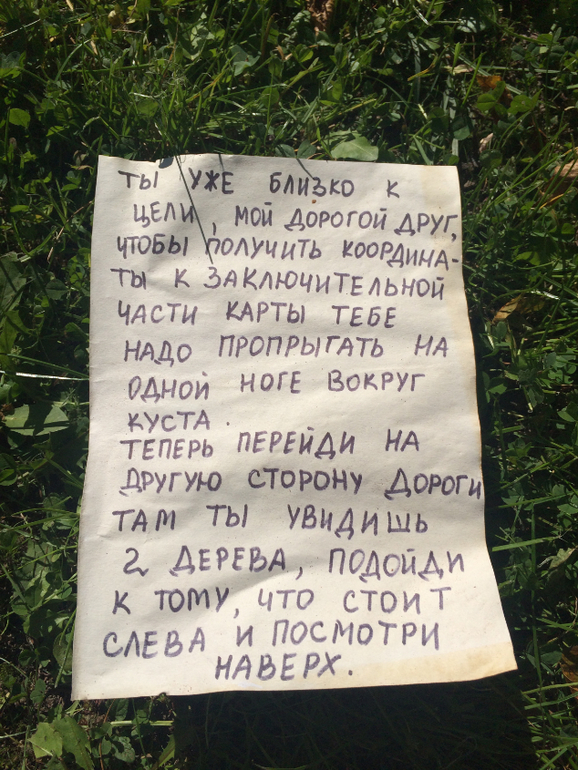 ТЫ УЖЕ БЛИЗКО К
ЦЕЛИ, МОЙ ДОРОГОЙ ДРУГ,
ЧТОБЫ ПОЛУЧИТЬ КООРДИНА-
ТЫ К ЗАКЛЮЧИТЕЛЬНОЙ
ЧАСТИ КАРТЫ ТЕБЕ
НАДО ПРОПРЫГАТЬ НА
ОДНОЙ НОГЕ ВОКРУГ
КУСТА.
ТЕПЕРЬ ПЕРЕЙДИ НА
ДРУГУЮ СТОРОНУ ДОРОГИ
ТАМ ТЫ УВИДИШЬ
2 ДЕРЕВА, ПОДОЙДИ
К ТОМУ, ЧТО СТОИТ
СЛЕВА И ПОСМОТРИ
НАВЕРХ.